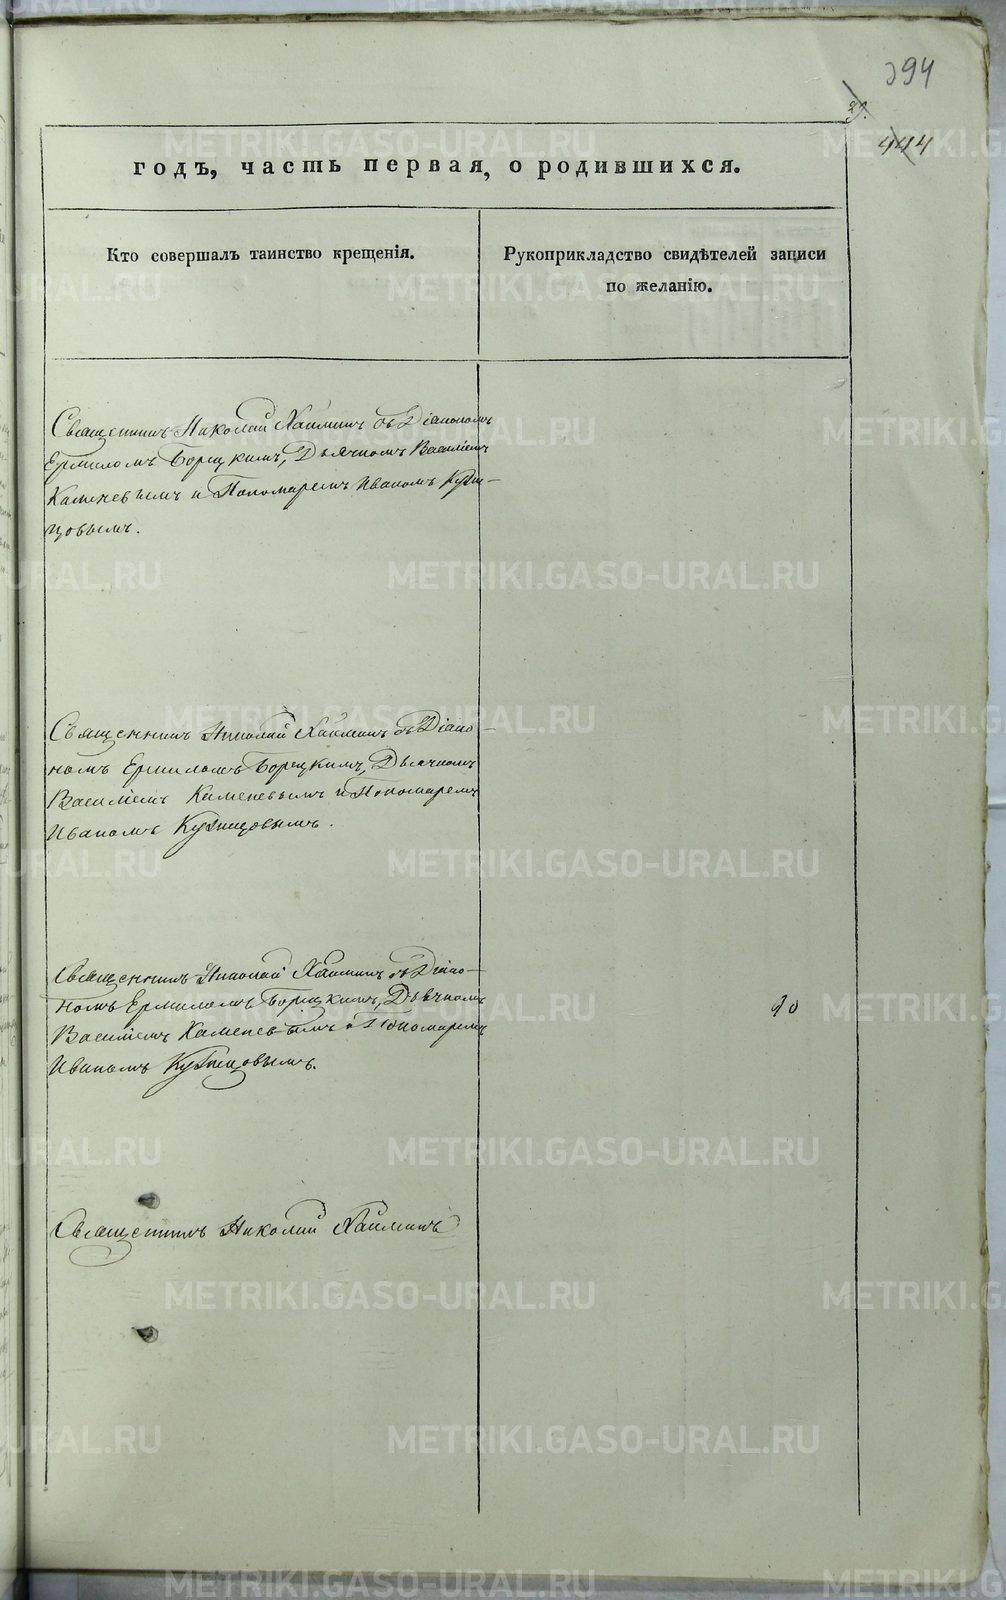 394
29.
444
годъ, часть первая, о родившихся.
Кто совершалъ таинство крещенія.
Рукоприкладство свидѣтелей записи
по желанію.
Священникъ Николай Хаймин съ Діакономъ
Ермиломъ Борецкимъ, Дьячкомъ Василіемъ
Каменевымъ и Пономаремъ Иваномъ Кузне-
цовымъ.
Священникъ Николай Хайминъ съ Діако-
номъ Ермиломъ Борецкимъ, Дьячкомъ
Василіемъ Каменевымъ и Пономаремъ
Иваномъ Кузнецовымъ.
Священникъ Николай Хайминъ съ Діако-
номъ Ермиломъ Борецкимъ, Дьячкомъ
Василіемъ Каменевымъ и Пономаремъ
Иваномъ Кузнецовымъ.
Священникъ Николай Хайминъ
METRIKI.GASO-URAL.RU